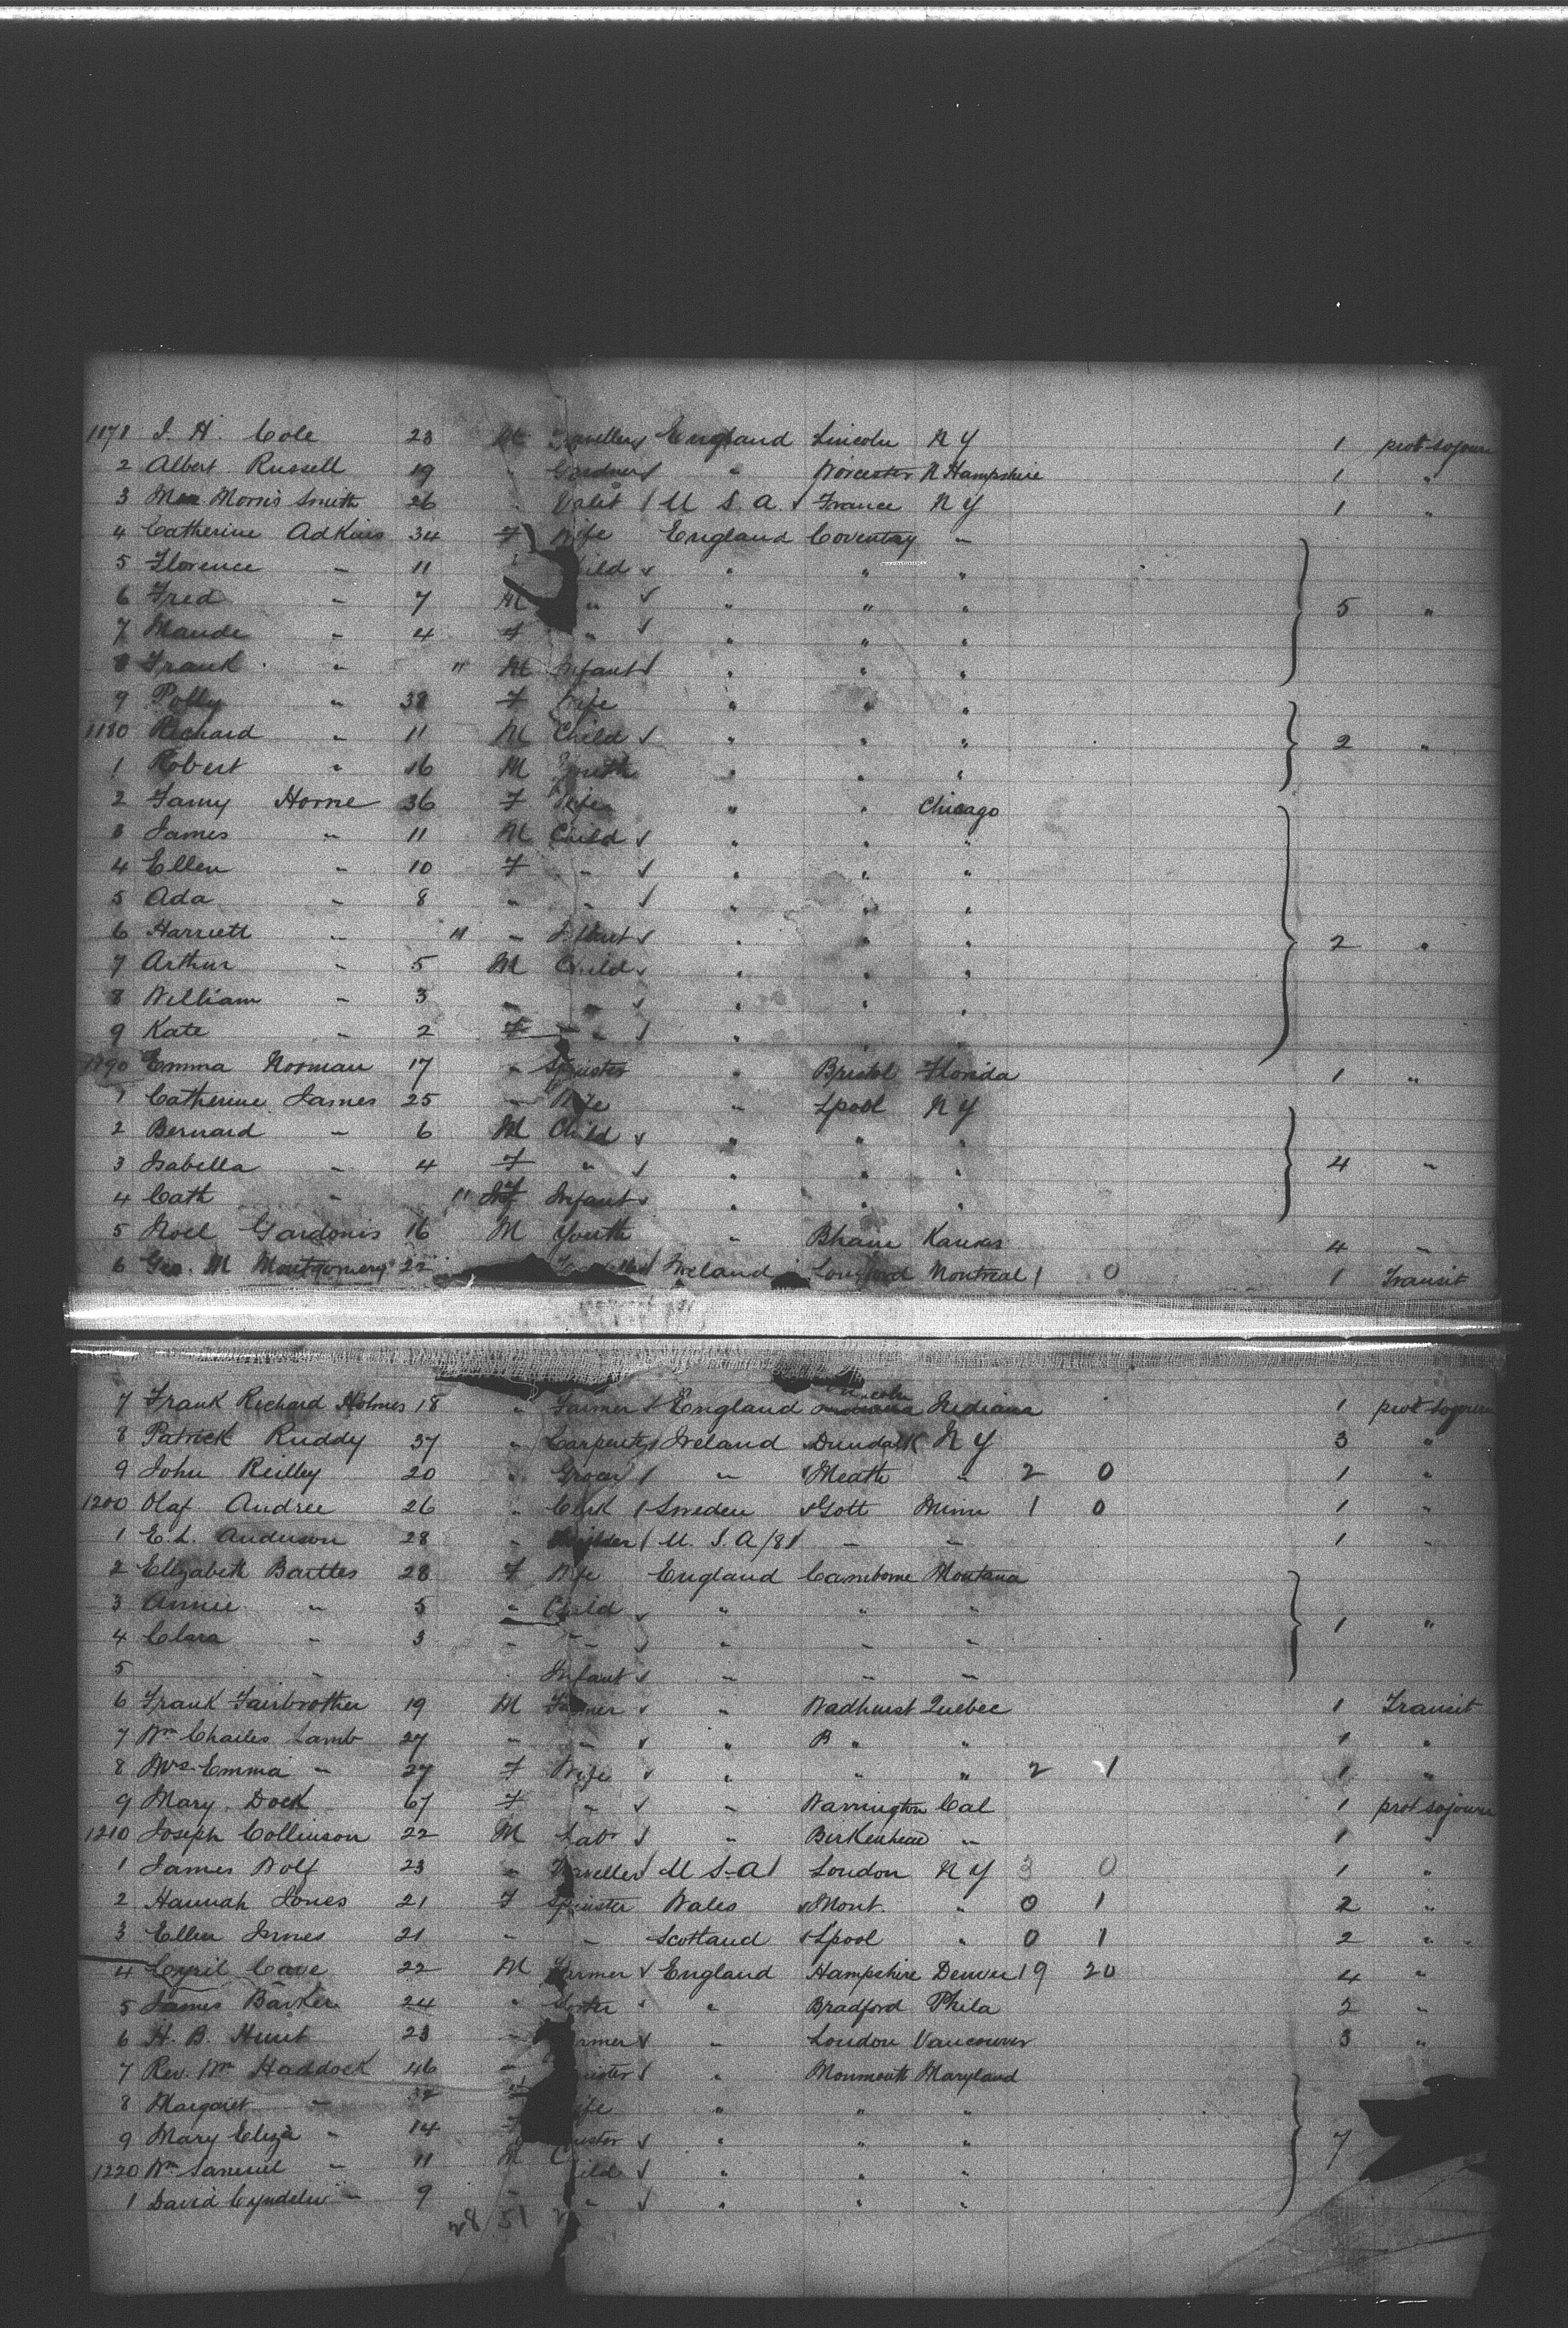 1171 J. H. Cole 23 M Travellers England Lincoln N Y 1 prot sojourn
2 Albert Russell 19 " Gardner " Worcester N Hampshire 1 "
3 Morris Smith 26 " Valet / U S. A. France N Y 1 "
4 Catherine Adkins 34 F Wife England Coventry "
5 Florence " 11 " " "
6 Fred " 7 M " " " " 5 "
7 Maude " 4 F " " " "
8 Frank " 11 M Infant " " "
9 Polly " 38 F Wife " " "
1180 Richard " 11 M Child " " " 2 "
1 Robert " 16 M " " "
2 Fanny Horne 36 F Wife " " Chicago
3 James " 11 M Child " " "
4 Ellen " 10 F " " " "
5 Ada " 8 " " " " "
6 Harriett " 11 " Infant " " " 2 "
7 Arthur " 5 M Child " " "
8 William " 3 " " " " "
9 Kate " 2 F " " "
1190 Emma Norman 17 " Spinster " Bristol Florida 1 "
1 Catherine James 25 " Wife " Lpool N Y
2 Bernard " 6 M Child " " "
3 Isabella " 4 F " " " " 4 "
4 Cath " 11 F Infant " " "
5 Noel Gardonis 16 M Youth " Kansas 4 "
6 Geo. M Montgomery 22 Ireland Longford Montreal 1 0 1 Transit
7 Frank Richard Holmes 18 " Farmer England Lincoln Indiana 1 prot sojourn
8 Patrick Ruddy 37 " Carpenter Ireland Dundalk N Y 3 "
9 John Reilley 20 " Grocer / " Meath " 2 0 1 "
1200 Olaf Andree 26 " Clerk Sweden Gott Minn 1 0 1 "
1 E. L. Anderson 28 " U. S. A " " 1 "
2 Elizabeth Bartles 28 F Wife England Camborne Montana
3 Annie " 5 " Child " " "
4 Clara " 3 " " " " " 1 "
5 " Infant " " "
6 Frank Fairbrother 19 M Farmer " Wadhurst Quebec 1 Transit
7 Wm Charles Lamb 27 " " " B " " 1 "
8 Mrs Emma " 27 F Wife " " " 2 1 1 "
9 Mary Dock 67 F " " Warrington Cal 1 prot sojourn
1210 Joseph Collinson 22 M Labr " Birkenhead " 1 "
1 James Wolf 23 " Traveller U S A London N Y 3 0 1 "
2 Hannah Jones 21 F Spinster Wales Mont. " 0 1 2 "
3 Ellen Innes 21 " " Scotland Lpool " 0 1 2 "
4 Cyril Cave 22 M Farmer England Hampshire Denver 19 20 4 "
5 James Barker 24 " " Bradford Phila 2 "
6 H. B. Hunt 23 " " London Vancouver 3 "
7 Rev. Wm Haddock 46 " " Monmouth Maryland
8 Margaret " 32 " " "
9 Mary Eliza " 14 F " " " 7
1220 Wm Samuel " 11 M " " "
1 David " 9 " " " " "
51